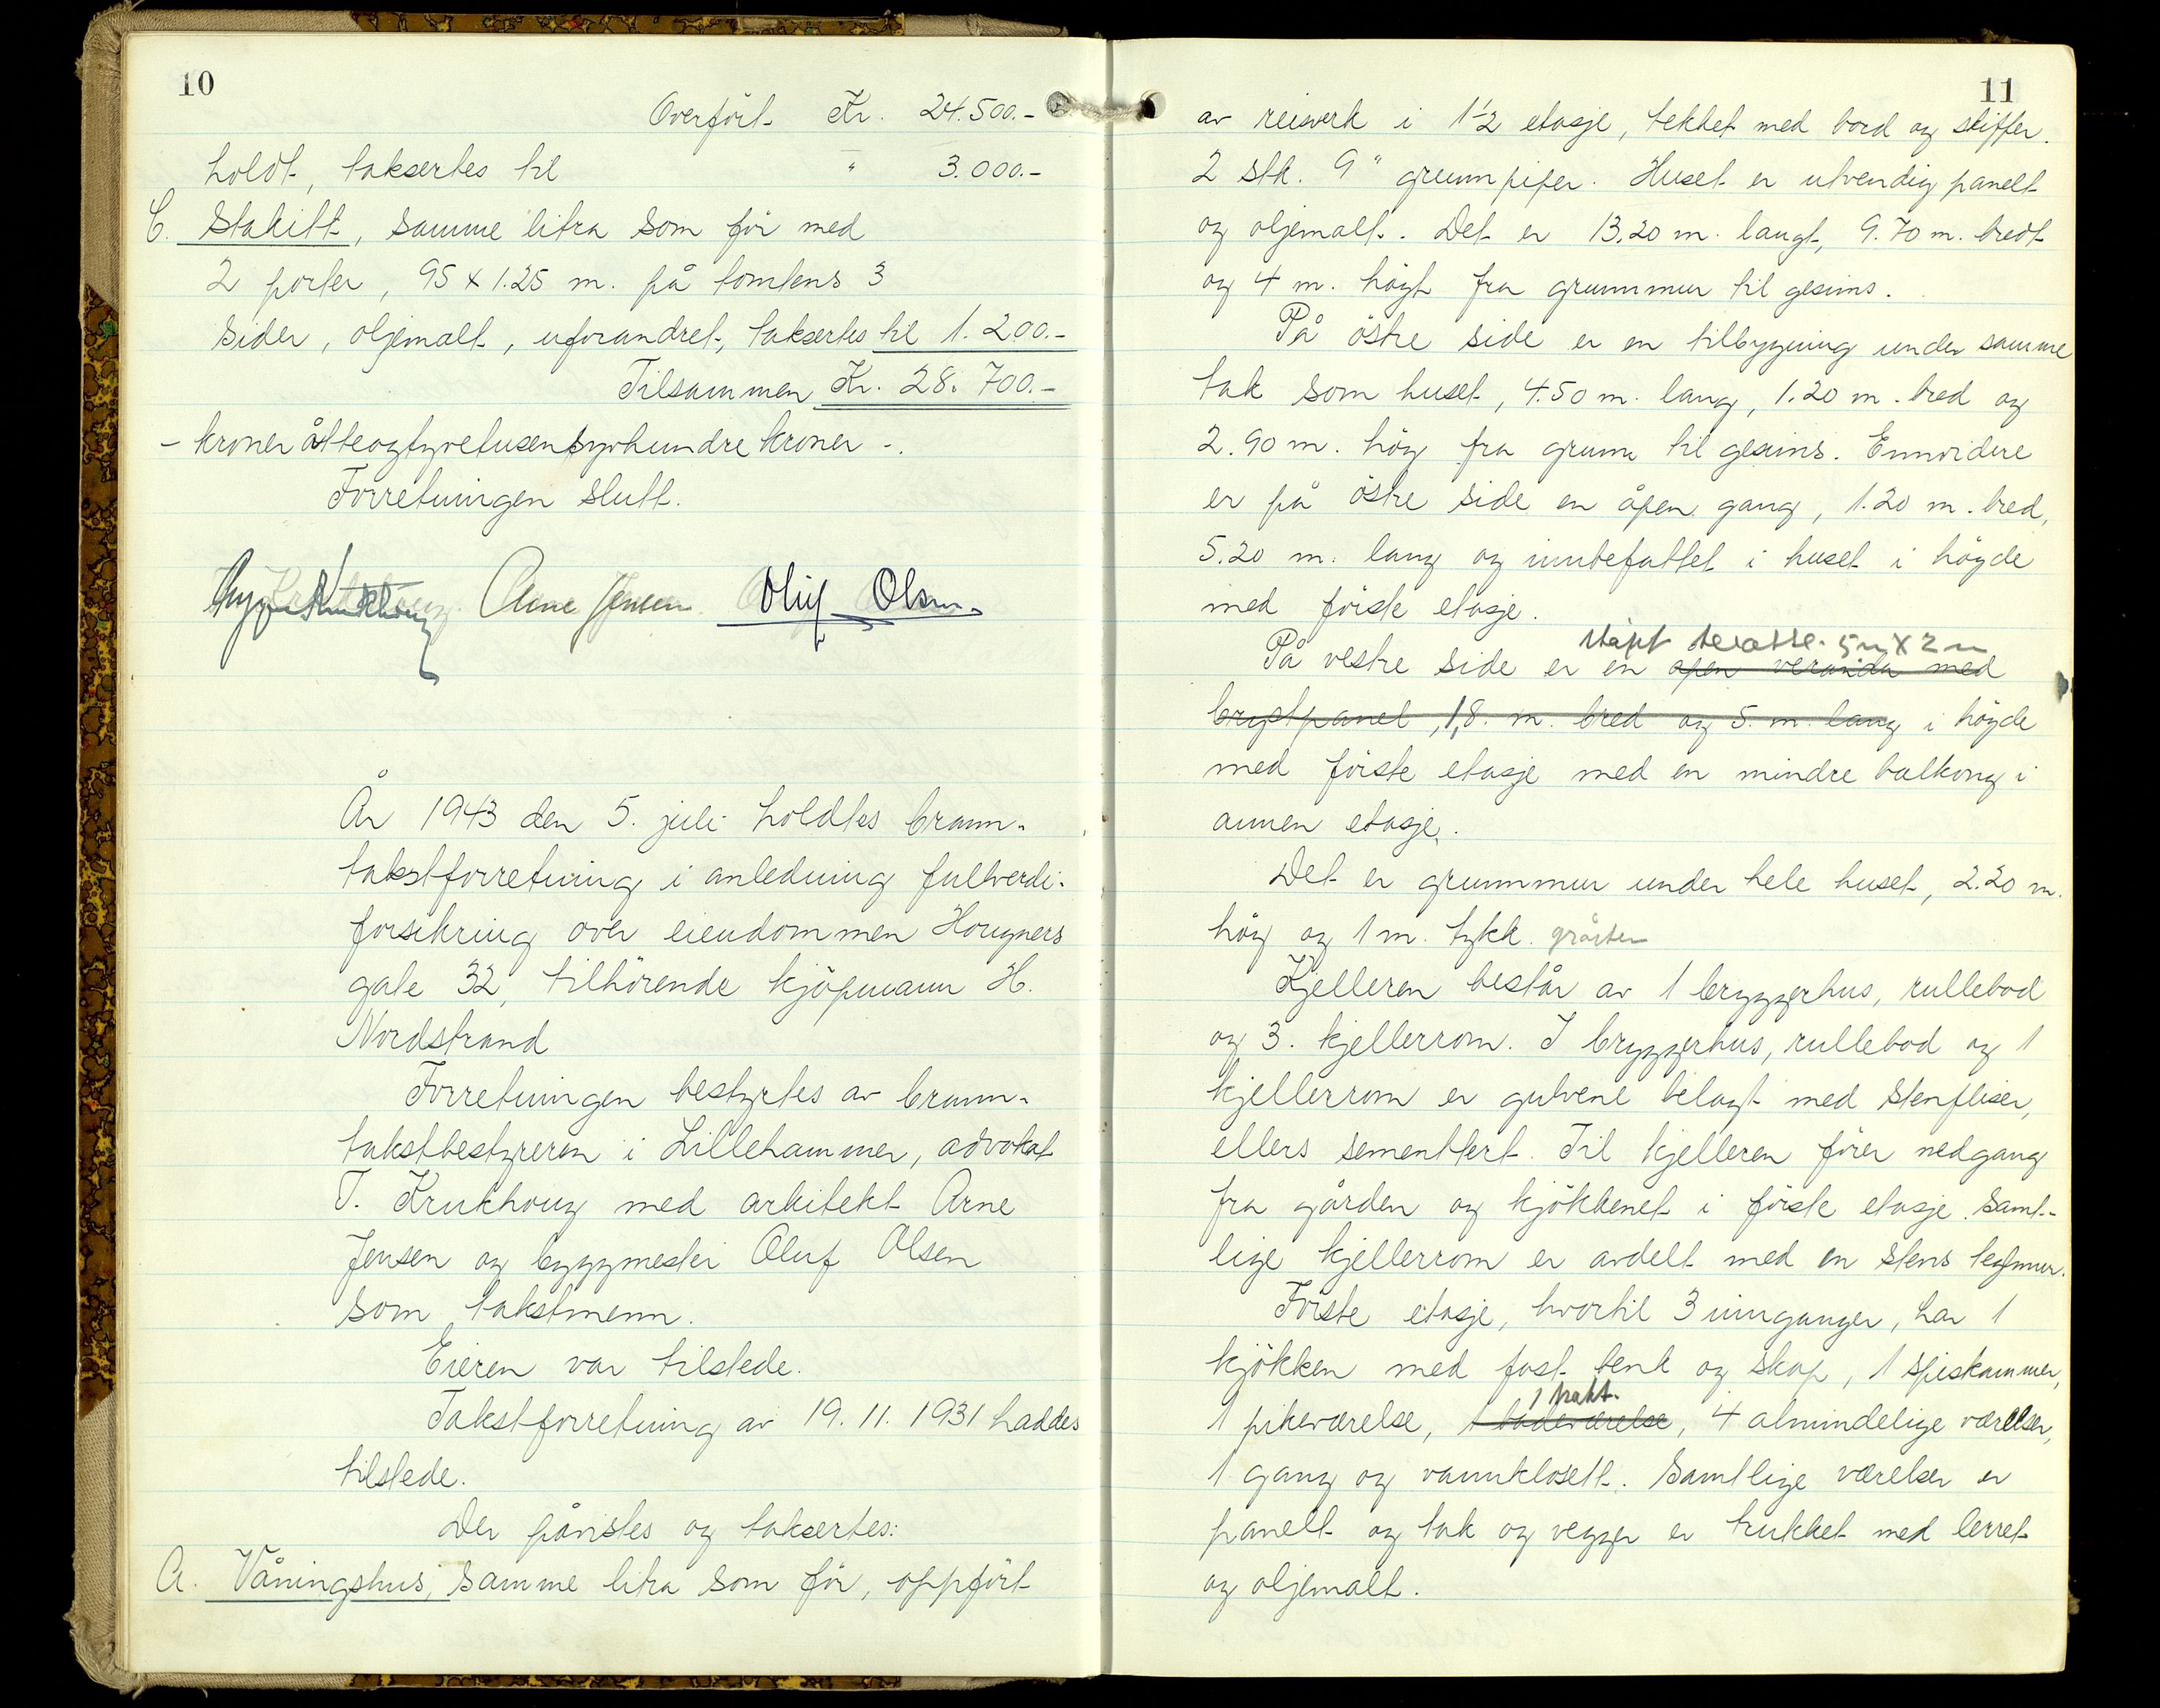 10
Overført Kr. 24.500.-
holdt, taksertes til " 3.000.-
C. Stakitt, samme litra som för med
2 porter, 95 x 1.25 m. på tomtens 3
sider, oljemalt, uforandret, taksertes til 1.200.-
Tilsammen Kr. 28.700.-
- kroner åtteogtyvetusensyvhundre kroner -.
Forretningen slutt.
Arne Jensen Oluf Olsen
År 1943 den 5. juli holdtes brann-
takstforretning i anledning fullverdi-
forsikring over eiendommen Hougners
gate 32, tilhörende kjöpmann H.
Nordstrand
Forretningen bestyrtes av brann-
takstbestyreren i Lillehammer, advokat
T. Krukhoug med arkitekt Arne
Jensen og byggmester Oluf Olsen
som takstmenn.
Eieren var tilstede.
Takstforretning av 19.11.1931 haddes
tilstede.
Der påvistes og taksertes:
A. Våningshus, samme litra som för, oppfört
11
av reisverk i 1 1/2 etasje, tekket med bord og skiffer.
2 stk. 9" grunnpiper. Huset er utvendig panelt
og oljemalt. Det er 13.20 m. langt, 9.70 m. bredt
og 4 m. högt fra grunnmur til gesims.
På östre side er en tilbygning under samme
tak som huset, 4.50 m. lang, 1.20 m. bred og
2.90 m. höy fra grunn til gesims. Ennvidere
er på östre side en åpen gang, 1.20 m. bred,
5.20 m. lang og innbefattet i huset i höyde
med förste etasje.
støpt terasse. 5m x 2m
På vestre side er en åpen veranda med
brystpanel, 1,8. m. bred og 5. m. lang i höyde
med förste etasje med en mindre balkong i
annen etasje.
Det er grunnmur under hele huset, 2.20 m.
höy og 1 m. tykk. gråsten
Kjelleren består av 1 bryggerhus, rullebod
og 3. kjellerrom. I bryggerhus, rullebod og 1
kjellerrom er gulvene belagt med stenfliser,
ellers sementtert. Til kjelleren förer nedgang
fra gården og kjökkenet i förste etasje. Samt-
lige kjellerrom er avdelt med en stens teglmur.
Förste etasje, hvortil 3 innganger, har 1
kjökken med fast benk og skap, 1 spiskammer,
1 trakt.
1 pikeværelse, 1 badeværelse, 4 almindelige værelser,
1 gang og vannklosett. Samtlige værelser er
panelt og tak og vegger er trukket med lerret
og oljemalt.